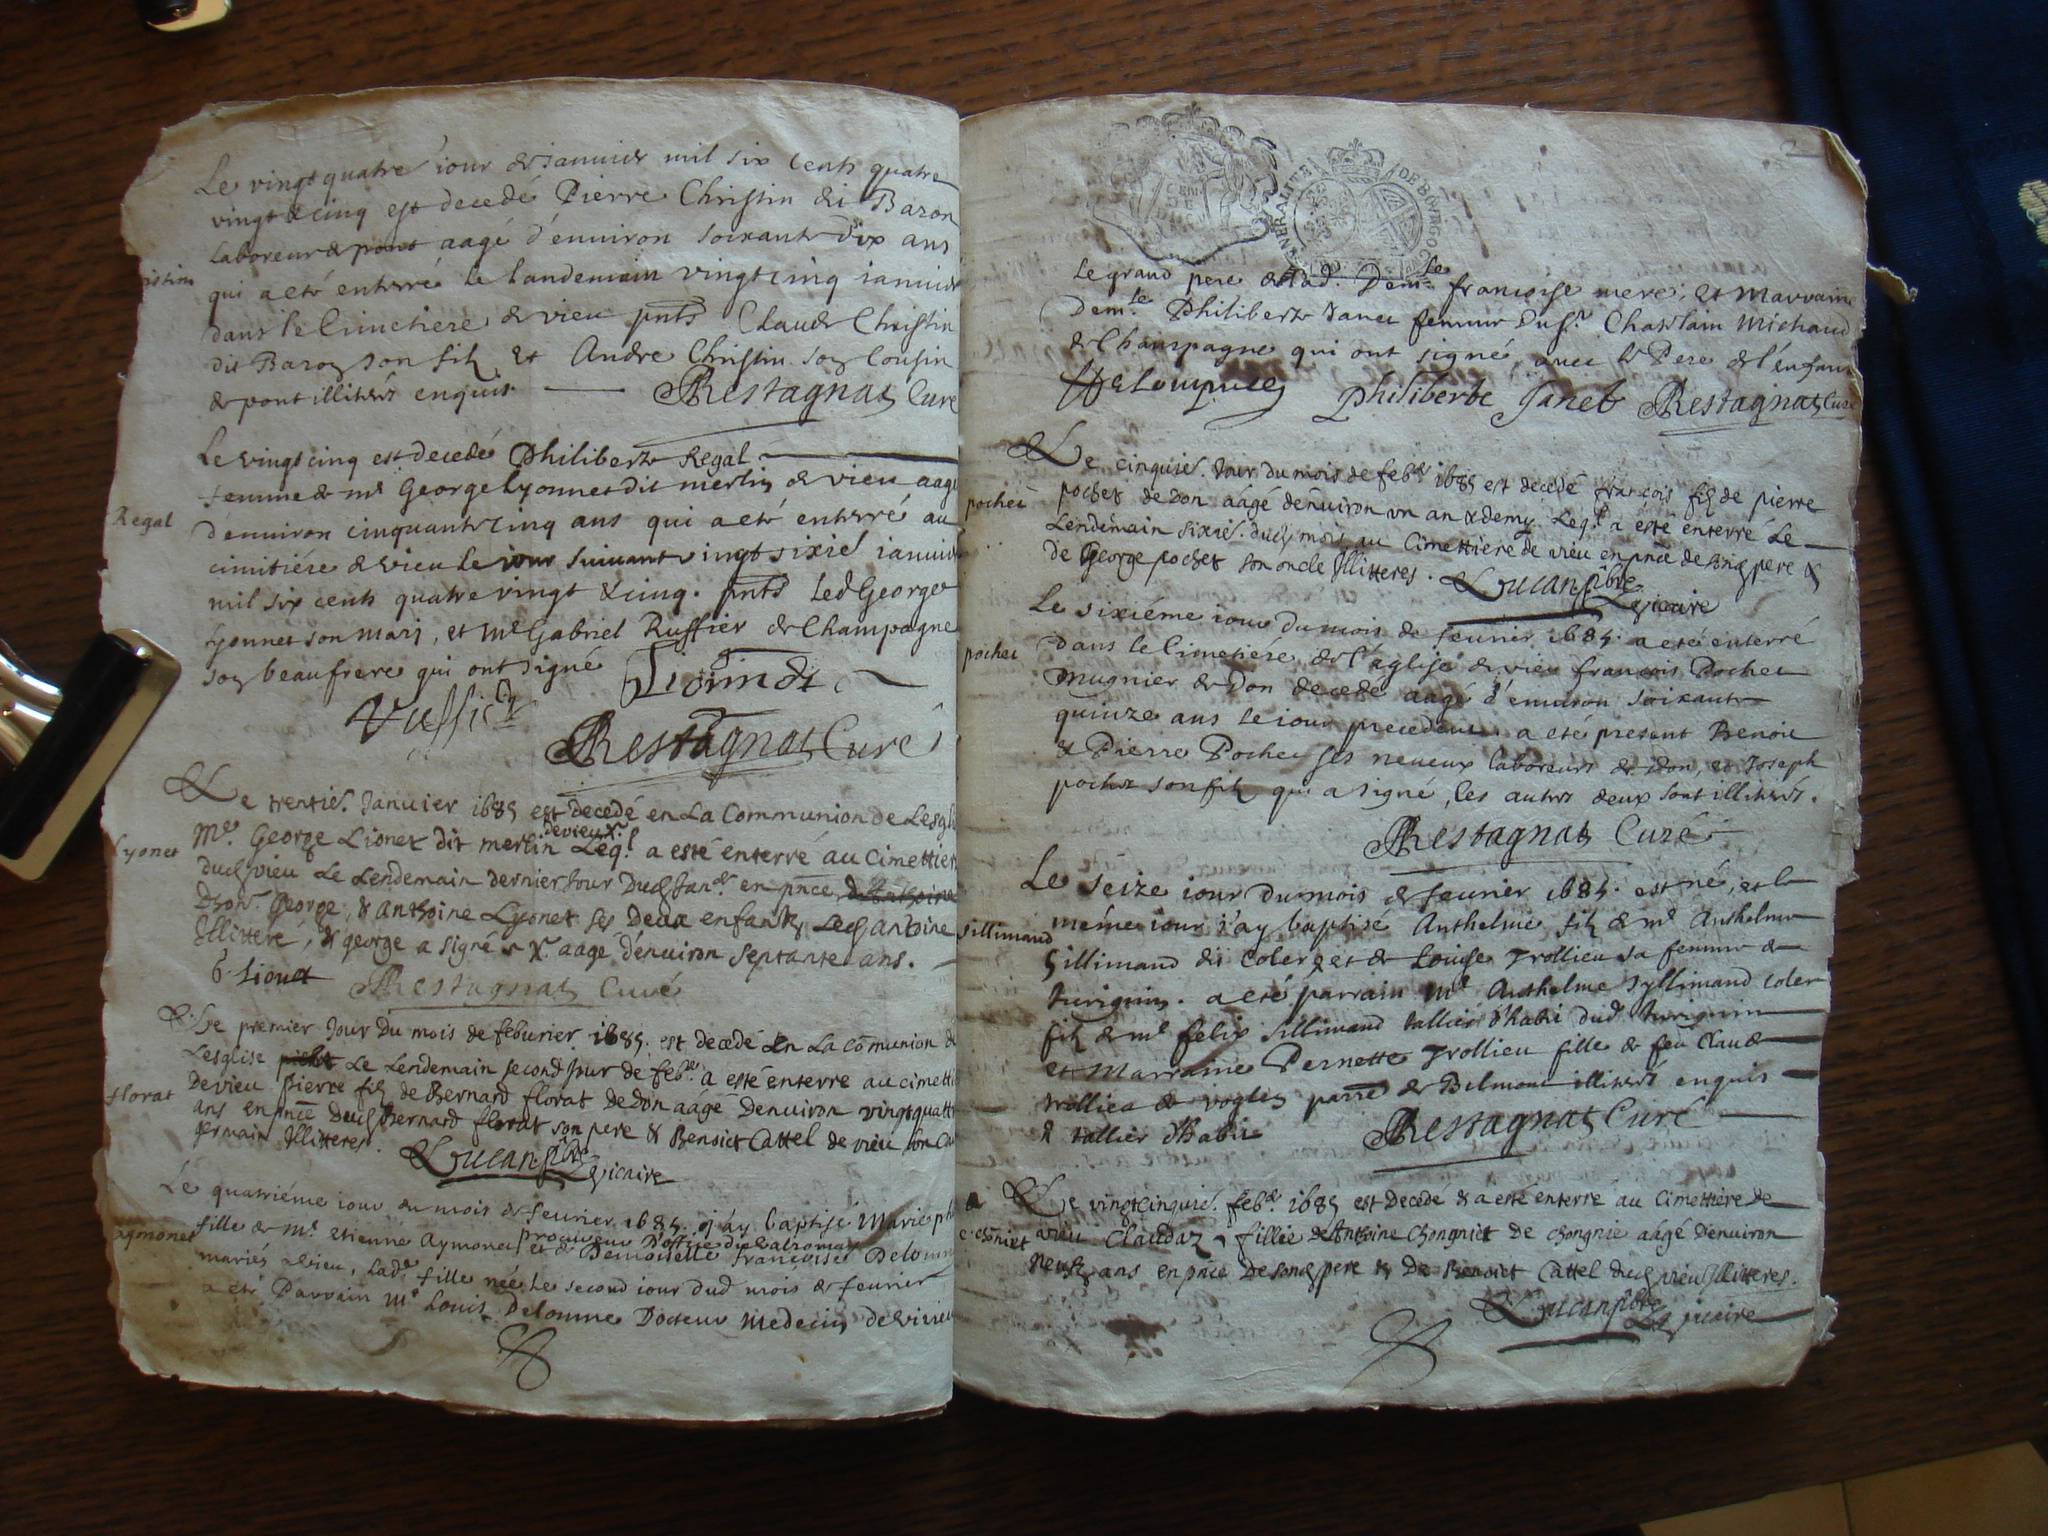 Le vingt quatre iour de ianvier mil six cents quatre
vingt & cinq est decedé Pierre Christin dit Baron
Laboreur de pont aagé d'environ soixante dix ans
qui a eté enterré le landemain vingt cinq ianvier
dans le Cimetiere de vieu pnts Claude Christin
dit Baron son filz et Andre Christin son Cousin
de pont illiterés enquis
Restagnat Curé
Le vingt cinq est decedé Philiberte Regal
Regal
femme de mr George lyonnet dit merlin de vieu aagé
d'environ cinquante cinq ans qui a eté enterré au
cimitiére de vieu le iour suivant vingt sixie ianvier
mil six cents quatre vingt & cinq. pnts Led George
Lyonnet son mari, et Mr Gabriel Ruffier de Champagne
son beaufrere qui ont signé
Restagnat Curé
Le trentie. Janvier 1685 est decedé en La Communion de Lesgl
Lyonet
Mr. George Lionet dit merlin Leql. a esté enterré au Cimettier
de vieu X.
dud vieu Le Lendemain dernier Jour dud Jan.r en pnce
George, & Anthoine Lyonet ses deux enfants Led antoine
Illitteré, & george a signé X. aagé d'environ septante ans.
G. Lionet
Restagnat Curé
Le premier Jour du mois de feburier 1685. est decedé en La comunion de
Lesglise Le Lendemain second Jour de feb.r a esté enterre au cimetti
florat
Devieu pierre filz de Bernard florat de don aâgé Denviron vingt quattr
ans en pnce Dud Bernard florat son pere & Benoict Cattel de vieu son
germain Illitteres.
Lucan pbre
vicaire
Le quatriéme iour du mois de fevrier 1685. j'ay baptisé Marie
aymonet
fille de mr. etienné Aymonet et de Demoiselle françoise Delom
procureur d'office du valromay
mariés a vieu, lad.e fille née le second iour dud mois de fevrier
a eté Parrain Mr Louis Delomme Docteur Medecin de virieu
GENERALITE DE BOVRGOGNE
2
le grand pere de lad. Dem.lle francoise mere, et Marraine
Dem.le Philiberte Janet femme du sr. Chastelain Michaud
de Champagne qui ont signé avec le Pere de l'enfant
Philiberte Janet
Restagnat Curé
Le cinquie. Jour du mois de feb.r 1685 est decedé francois filz de pierre
pochet
pochet de Don aagé denviron un an & demy Leql. a esté enterré Le
Lendemain sixie. dud mois au Cimettiere de vieu en pnce de sond pere &
de George pochet son oncle Illitteres.
Lucan pbre
vicaire
Le sixiéme iour du mois de fevrier 1685. a eté enterré
pochet
dans le Cimetiere de l'église de vieu francois Pochet
mugnier de Don decedé aagé d'environ soixante
quinze ans le iour precedent. a eté present Benoit
& Pierre Pochet ses neveux laboreurs de don, et Joseph
pochet son filz qui a signé, les autres deux sont illiterés.
Restagnat Curé
Le seize iour du mois de fevrier 1685. est né, et le
méme iour j'ay baptisé Anthelme filz de mr Anthelme
sillimand
Sillimand dit Coler et de Louise Trollieu sa femme de
turignin. a eté parrain Mr Anthelme Syllimand Coler
filz de mr felix Sillimand tallier d'habit dud turignin
et Marraine Pernette Trollieu fille de feu Claude
trollieu de voglen parre de Belmont illiterés enquis
& tallier d'habit
Restagnat Curé
Le vingtcinquie. feb.r 1685 est decedé & a esté enterré au Cimettiere de
vieu Claudaz fillie de Anthoine Chongniet de chongnie aâgé Denviron
neufz ans en pnce De sond pere & De Benoict Cattel dud vieu Illitteres.
Lucan pbre
vicaire